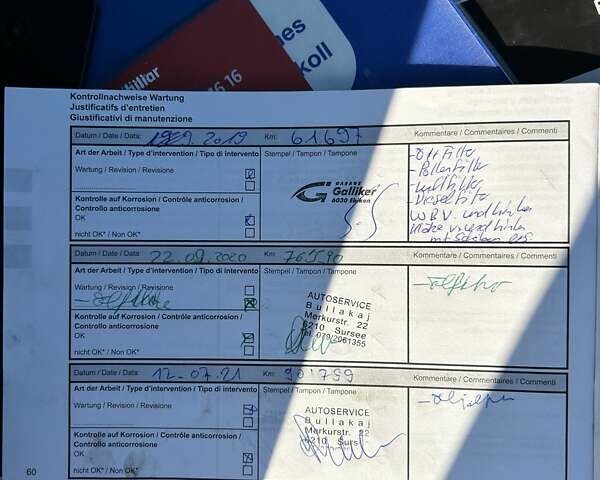 nes
koll
illiar
16 16
Kontrollnachweise Wartung
Justificatifs d'entretien
Giustificativi di manutenzione
Datum / Date / Data: 2019 Km: 61697
Kommentare / Commentaires / Commenti
Art der Arbeit / Type d'intervention / Tipo di intervento
Stempel / Tampon / Tampone
Wartung / Revision / Revisione
Kontrolle auf Korrosion / Contrôle anticorrosion /
Controllo anticorrosione
OK
nicht OK* / Non OK*
GARAGE
Galliker
6030 Ebikon
- Ölfilter
- Pollenfilter
- Luftfilter
- Dieselfilter
Datum / Date / Data: 22.09.2020 Km: 76590
Kommentare / Commentaires / Commenti
Art der Arbeit / Type d'intervention / Tipo di intervento
Stempel / Tampon / Tampone
Wartung / Revision / Revisione
Kontrolle auf Korrosion / Contrôle anticorrosion /
Controllo anticorrosione
OK
nicht OK* / Non OK*
AUTOSERVICE
Bullakaj
Merkurstr. 22
6210 Sursee
Tel. 079/2961355
Datum / Date / Data: 12-07.21 Km: 90'759
Kommentare / Commentaires / Commenti
Art der Arbeit / Type d'intervention / Tipo di intervento
Stempel / Tampon / Tampone
Wartung / Revision / Revisione
Kontrolle auf Korrosion / Contrôle anticorrosion /
Controllo anticorrosione
OK
nicht OK* / Non OK*
AUTOSERVICE
Bullakaj
Merkurstr. 22
6210 Surs
60